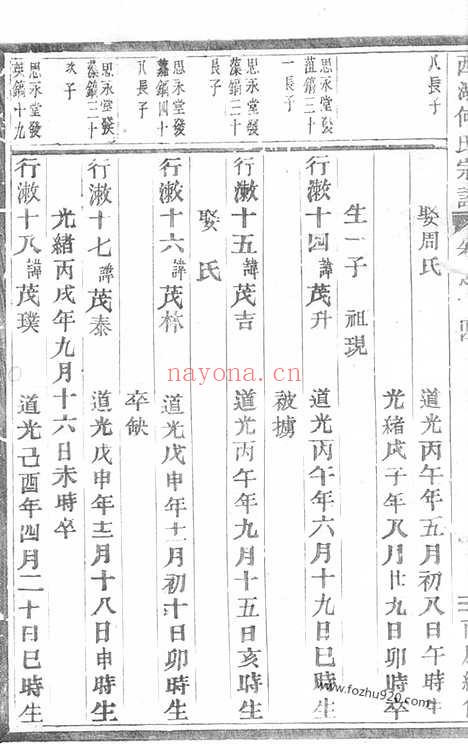 西湖何氏宗譜
八長子
娶周氏
道光丙午年五月初八日午時生
光緒戊子年八月廿九日卯時卒
生一子 祖現
思永堂發
菹鎬三十
一長子
行漵十四諱茂升
道光丙午年六月十九日巳時生
被擄
思永堂發
藻鎬三十
長子
行漵十五諱茂吉
道光丙午年九月十五日亥時生
娶 氏
思永堂發
藻鎬四十
八長子
行漵十六諱茂林
道光戊申年十一月初十日卯時生
卒缺
思永堂發
藻鎬三十
次子
行漵十七諱茂泰
道光戊申年十二月十八日申時生
光緒丙戌年九月十六日未時卒
思永堂發
英鎬十九
行漵十八諱茂璞
道光己酉年四月二十日巳時生
nayona.cn
www.fozhu920.com